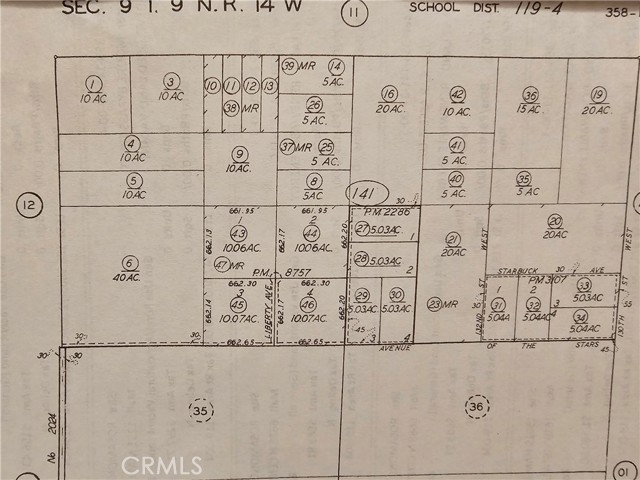 SEC. 9 T. 9 N. R. 14 W
11
SCHOOL DIST. 119-4
358-
1
10 AC
3
10 AC
10
11
12
13
38 MR
39 MR
14
5 AC.
26
5 AC.
16
20 AC.
42
10 AC.
36
15 AC.
19
20 AC.
4
10 AC.
9
10 AC.
37 MR
25
5 AC.
41
5 AC.
5
10 AC.
8
5 AC.
40
5 AC.
35
5 AC.
12
141
30
661.95
661.95
P.M. 2286
1
43
10.06 AC.
662.13
2
44
10.06 AC.
662.17
662.20
27
5.03 AC.
1
28
5.03 AC.
2
21
20 AC.
20
20 AC.
WEST
WEST
6
40 AC.
47 MR
P.M. 8757
STARBUCK
30
AVE
P.M. 3107
662.30
662.30
3
45
10.07 AC.
662.14
LIBERTY AVE.
662.17
4
46
10.07 AC.
662.20
29
5.03 AC.
30
5.03 AC.
23 MR
30
132ND
ST
1
31
5.04 A
2
32
5.04 AC
33
5.03 AC.
3
4
34
5.04 AC.
130TH
ST
45
3
4
30
30
30
662.65
662.65
AVENUE
OF
THE
STARS
45
No 2024
35
36
CRMLS
01